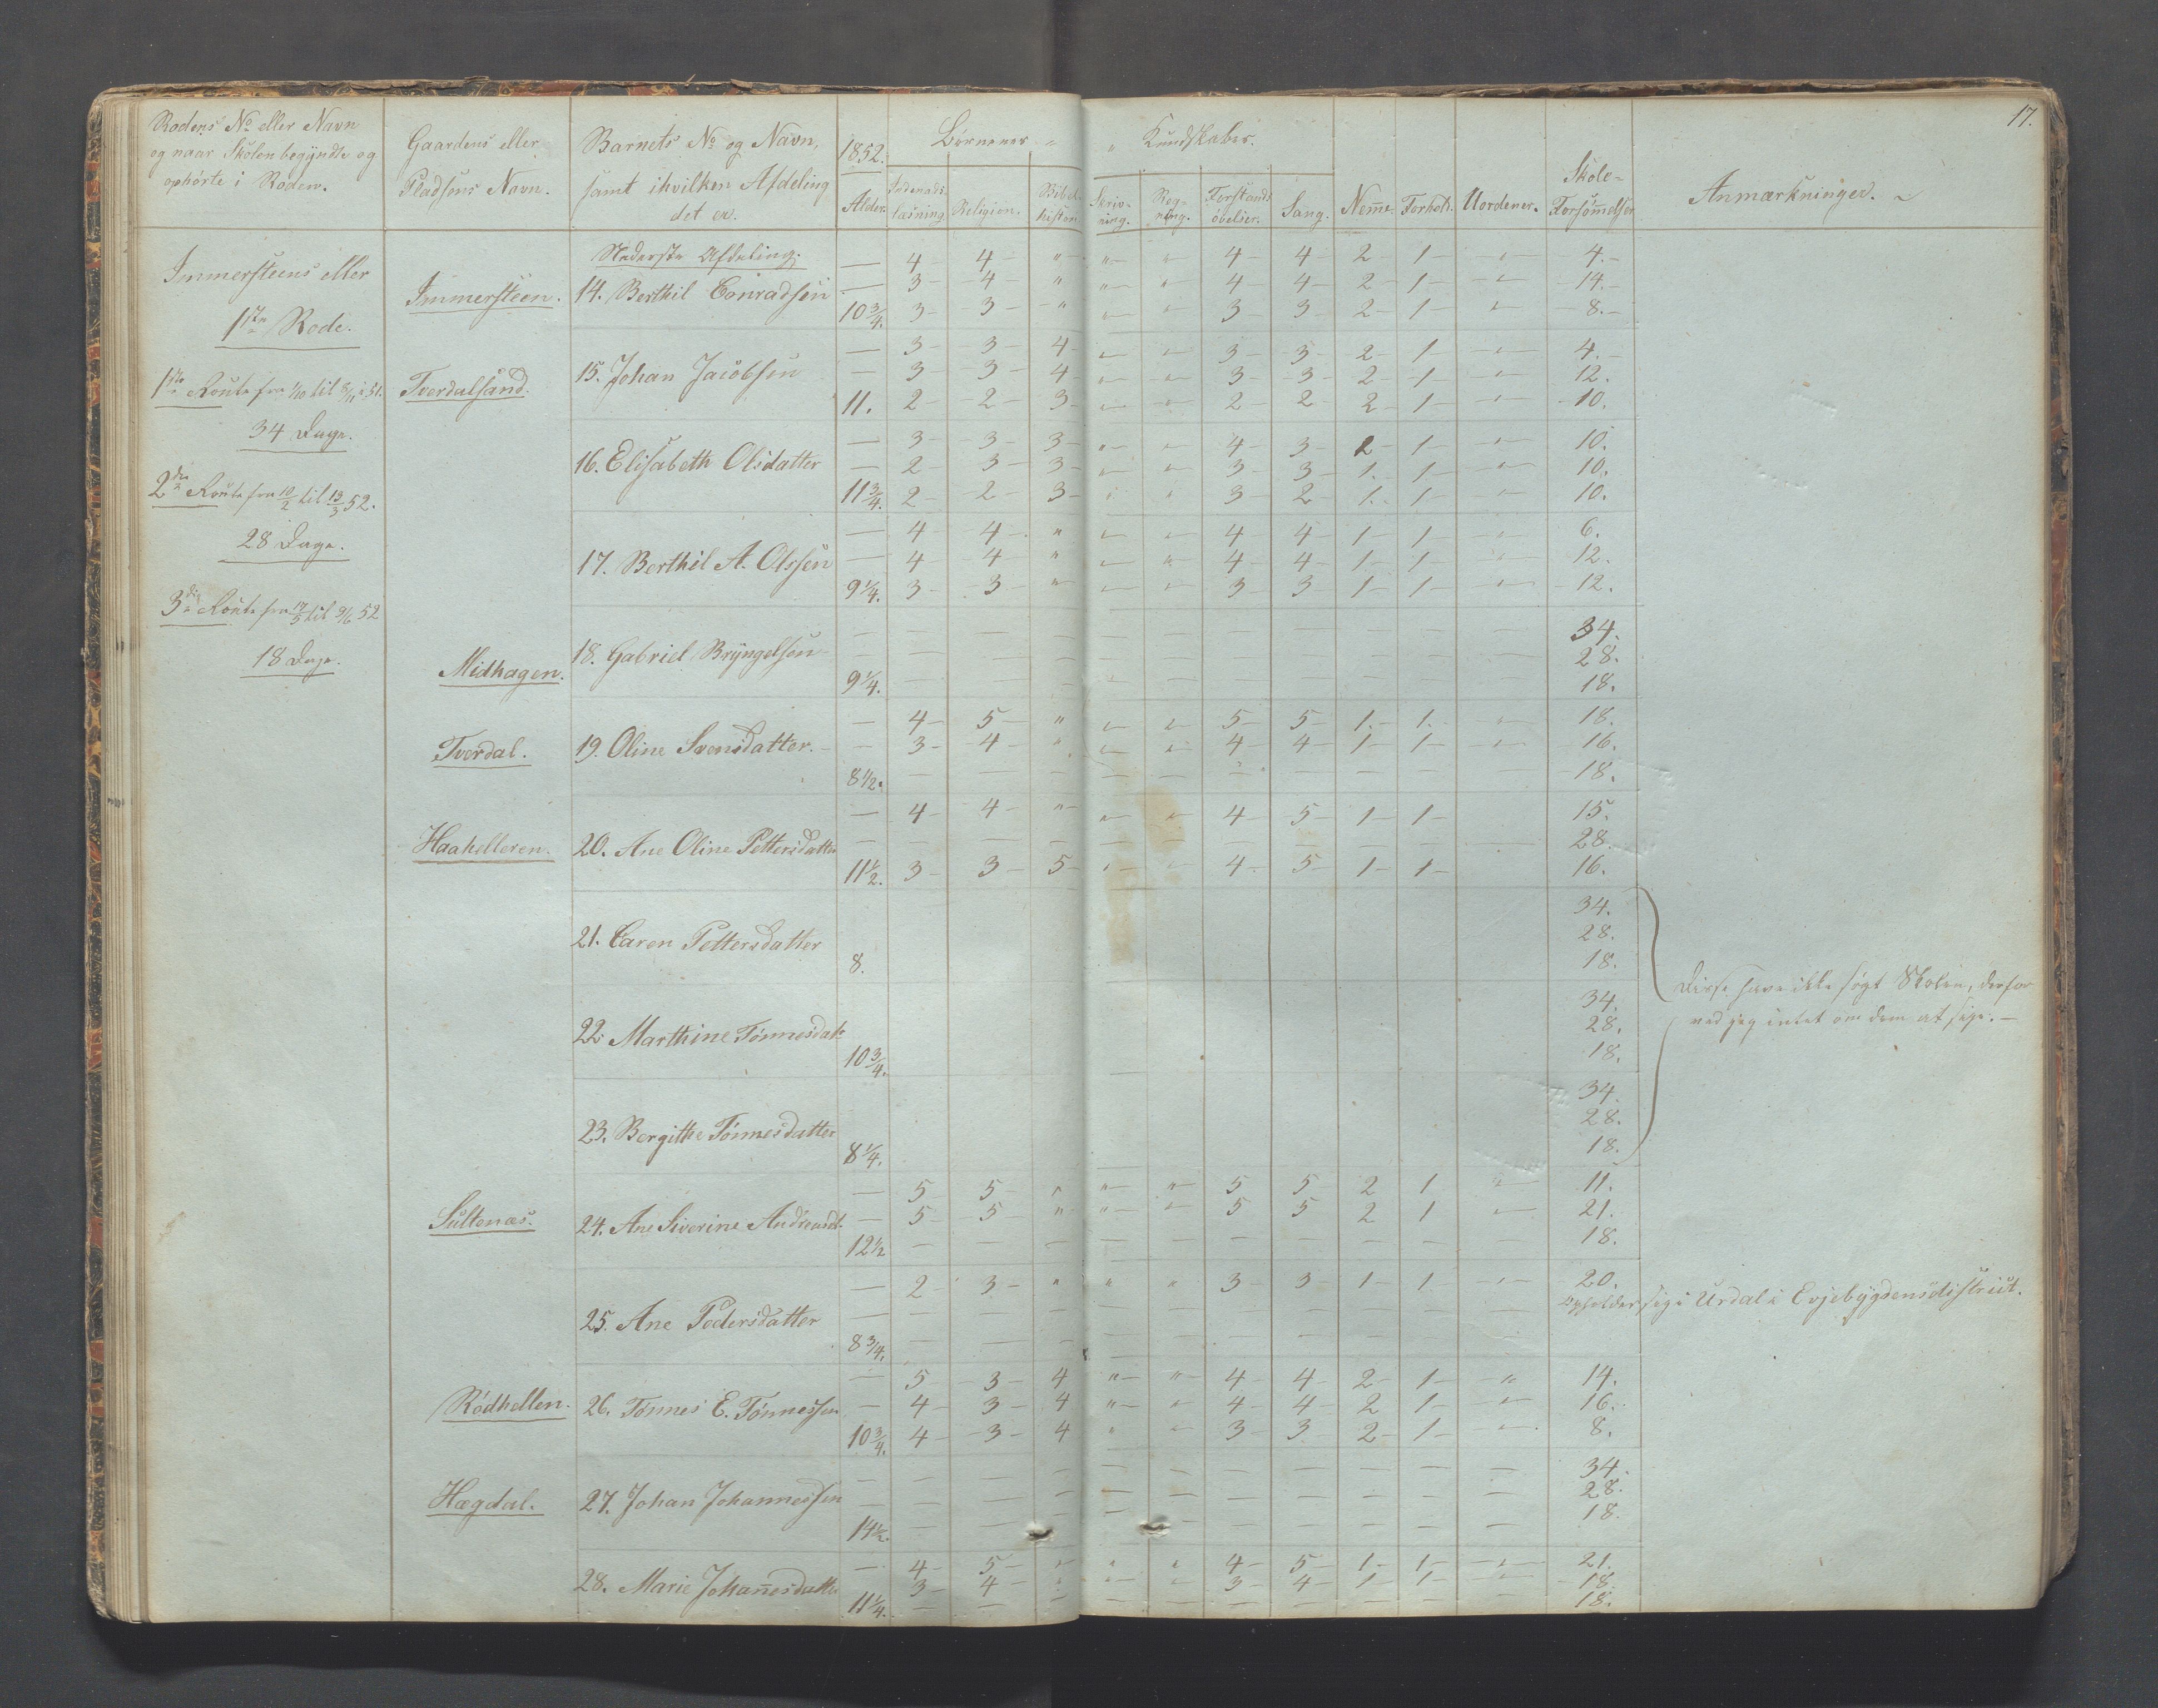 17.
Rodens No eller Navn
og naar Skolen begyndte og
ophörte i Roden.
Gaardens eller
Pladsens Navn.
Barnets No og Navn,
samt i hvilken Afdeling
det er.
1852.
Alder.
Börnenes
Kundskaber.
Indenads-
læsning.
Religion.
Bibel-
histori
Skriv-
ning.
Reg-
ning.
Forstands
övelser.
Sang.
Nem̄e.
Forhold.
Uordener.
Skole-
Forsöm̄elser
Anmærkninger.
Immersteens eller
1ste Rode.
1ste Route fra 1/10 til 8/11 i 51.
34 Dage.
2den Route fra 10/2 til 13/3 52.
28 Dage.
3die Route fra 17/5 til 9/6 52
18 Dage.
Nederste Afdeling.
Immersteen. 14. Berthil Conradsen
— 4 4 " " " 4 4 2 1 " 4.
— 3 4 " " " 4 4 2 1 " 14.
10 3/4. 3 3 " " " 3 3 2 1 " 8.
Tverdalsand. 15. Johan Jacobsen
— 3 3 4 " " 3 3 2 1 " 4.
— 3 3 4 " " 3 3 2 1 " 12.
11. 2 2 3 " " 2 2 2 1 " 10.
16. Elisabeth Olsdatter
— 3 3 3 " " 4 3 2 1 " 10.
— 2 3 3 " " 3 3 1 1 " 10.
11 3/4. 2 2 3 " " 3 2 1 1 " 10.
17. Berthil A. Olssen
— 4 4 " " " 4 4 1 1 " 6.
— 4 4 " " " 4 4 1 1 " 12.
9 1/4. 3 3 " " " 3 3 1 1 " 12.
Midhagen. 18. Gabriel Bryngelsen
— — — — — — — — — — — 34.
— — — — — — — — — — — 28.
9 1/4. — — — — — — — — — — 18.
Tverdal. 19. Oline Svensdatter.
— 4 5 " " " 5 5 1 1 " 18.
— 3 4 " " " 4 4 1 1 " 16.
8 1/2. — — — — — — — — — — 18.
Haahelleren. 20. Ane Oline Pettersdatter
— 4 4 " " " 4 5 1 1 15.
— — — — — — — — — — 28.
11 1/2. 3 3 5 " " 4 5 1 1 16.
21. Caren Pettersdatter
34.
28.
8. 18.
22. Marthine Tönnesdat
34.
28.
10 3/4. 18.
Disse have ikke sögt Skolen, derfor
ved jeg intet om dem at sige.
23. Bergithe Tönnesdatter
34.
28.
8 1/4. 18.
Sultenæs. 24. Ane Siverine Andreasd.
— 5 5 " " " 5 5 2 1 " 11.
— 5 5 " " " 5 5 2 1 " 21.
12 1/2 — — — — — — — — — — 18.
25. Ane Pedersdatter
— 2 3 " " " 3 3 1 1 " 20.
Opholder sig i Urdal i Evjebygdens district.
8 3/4. — — — — — — — —
Rödhellen. 26. Tönnes E. Tönnessen
— 5 3 4 " " 4 4 2 1 " 14.
— 4 3 4 " " 4 4 2 1 " 16.
10 3/4. 4 3 4 " " 3 3 2 1 " 8.
Hægdal. 27. Johan Johannessen
— — — — — — — — — — — 34.
— — — — — — — — — — — 28.
14 1/2. — — — — — — — — — — 18.
28. Marie Johan̄esdatter
— 4 5 " " " 4 5 1 1 " 21.
3 4 " " " 3 4 1 1 " 18.
11 1/4. — — — — — — — — — — 18.